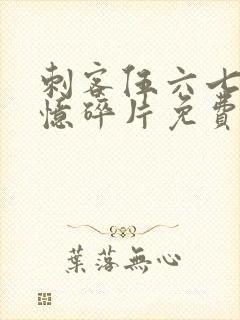 刺客伍六七
憶碎片免費
葉落無心